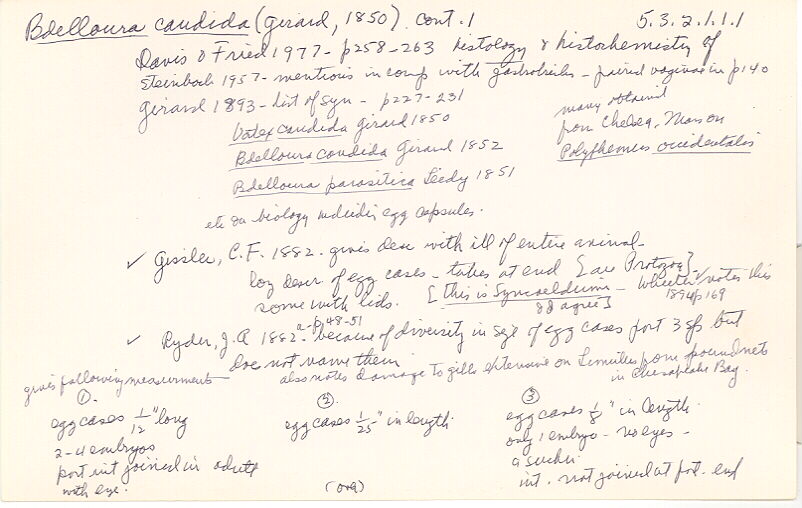 Bdelloura candida (Girard, 1850). cont. 1 5.3.2.1.1.1
Davis & Fried 1977 - p258-263 histology & histochemistry of
Steinbock 1957 - mentions in comp with gastrotrichs - paired vaginae in p140
Girard 1893 - list of syn - p227-231
Vortex candida Girard 1850
Bdelloura candida Girard 1852
Bdelloura parasitica Leidy 1851
many obtained
from Chelsea, Mass on
Polyphemus occidentalis
etc on biology including egg capsules.
✓ Gissler, C.F. 1882. gives desc with ill of entire animal -
long descr of egg cases - tubes at end [are Protozoa]
some with lids. [this is Syncoelidium - Wheeler ✓ notes this
1894 p169
agree]
✓ Ryder, J.A 1882 - because of diversity in size of egg cases port 3 sps but
a - p148-51
does not name them
also notes damage to gills extensive on Limulus from pound nets
in Chesapeake Bay.
gives following measurements
①.
egg cases 1/12" long
2-4 embryos
post int joined in adults
with eye.
②.
egg cases 1/25" in length.
(over)
③
egg cases 1/8" in length.
only 1 embryo - no eyes -
a sucker
int. not joined at post. end